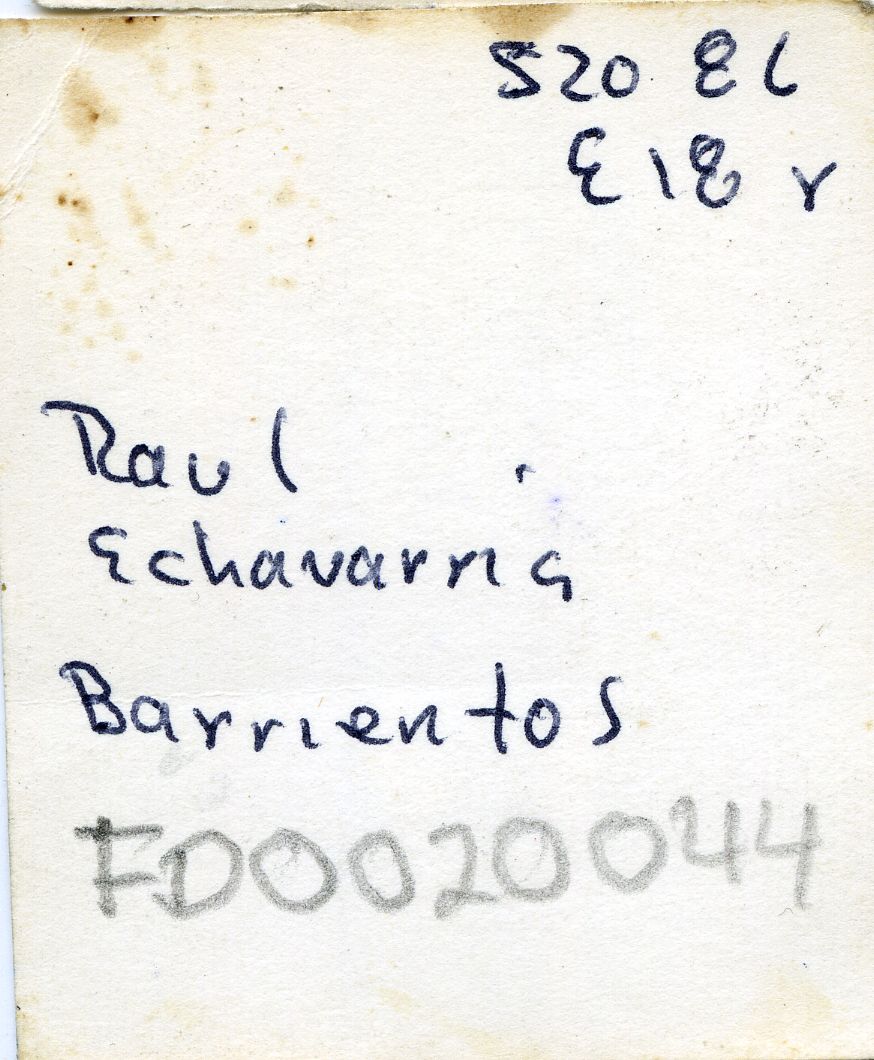 520 86
E18 r
Raul
Echavarria
Barrientos
FD0020044